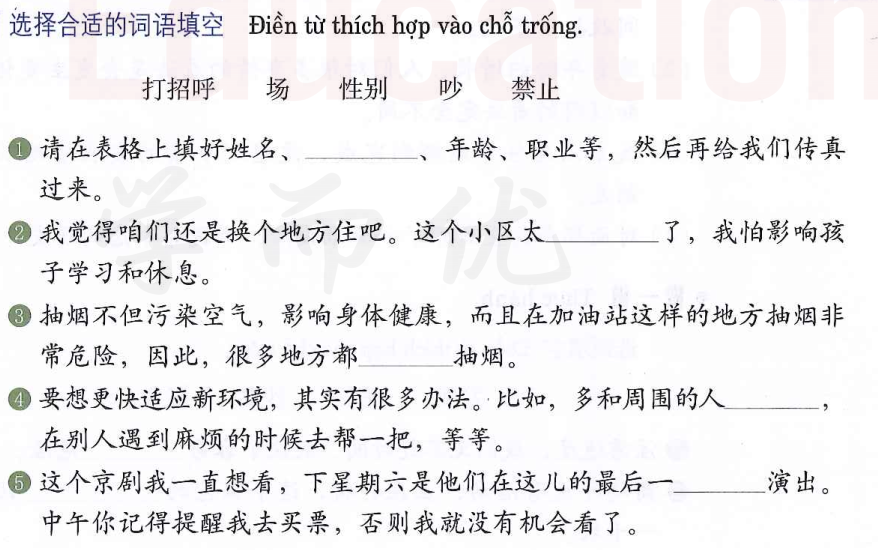 Education
选择合适的词语填空 Điền từ thích hợp vào chỗ trống.
打招呼 场 性别 吵 禁止
1 请在表格上填好姓名、________、年龄、职业等，然后再给我们传真
过来。
2 我觉得咱们还是换个地方住吧。这个小区太________了，我怕影响孩
子学习和休息。
3 抽烟不但污染空气，影响身体健康，而且在加油站这样的地方抽烟非
常危险，因此，很多地方都________抽烟。
4 要想更快适应新环境，其实有很多办法。比如，多和周围的人________，
在别人遇到麻烦的时候去帮一把，等等。
5 这个京剧我一直想看，下星期六是他们在这儿的最后一________演出。
中午你记得提醒我去买票，否则我就没有机会看了。
学而优